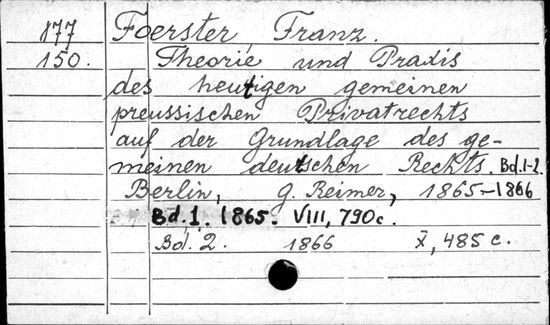 877 Foerster Franz.
150. Theorie und Praxis
des heutigen gemeinen
preussischen Privatrechts
auf der Grundlage des ge-
meinen deutschen Rechts. Bd.1-2.
Berlin, G. Reimer, 1865-1866
Bd. 1. 1865. VIII, 790c.
Bd. 2. 1866 X, 485 c.